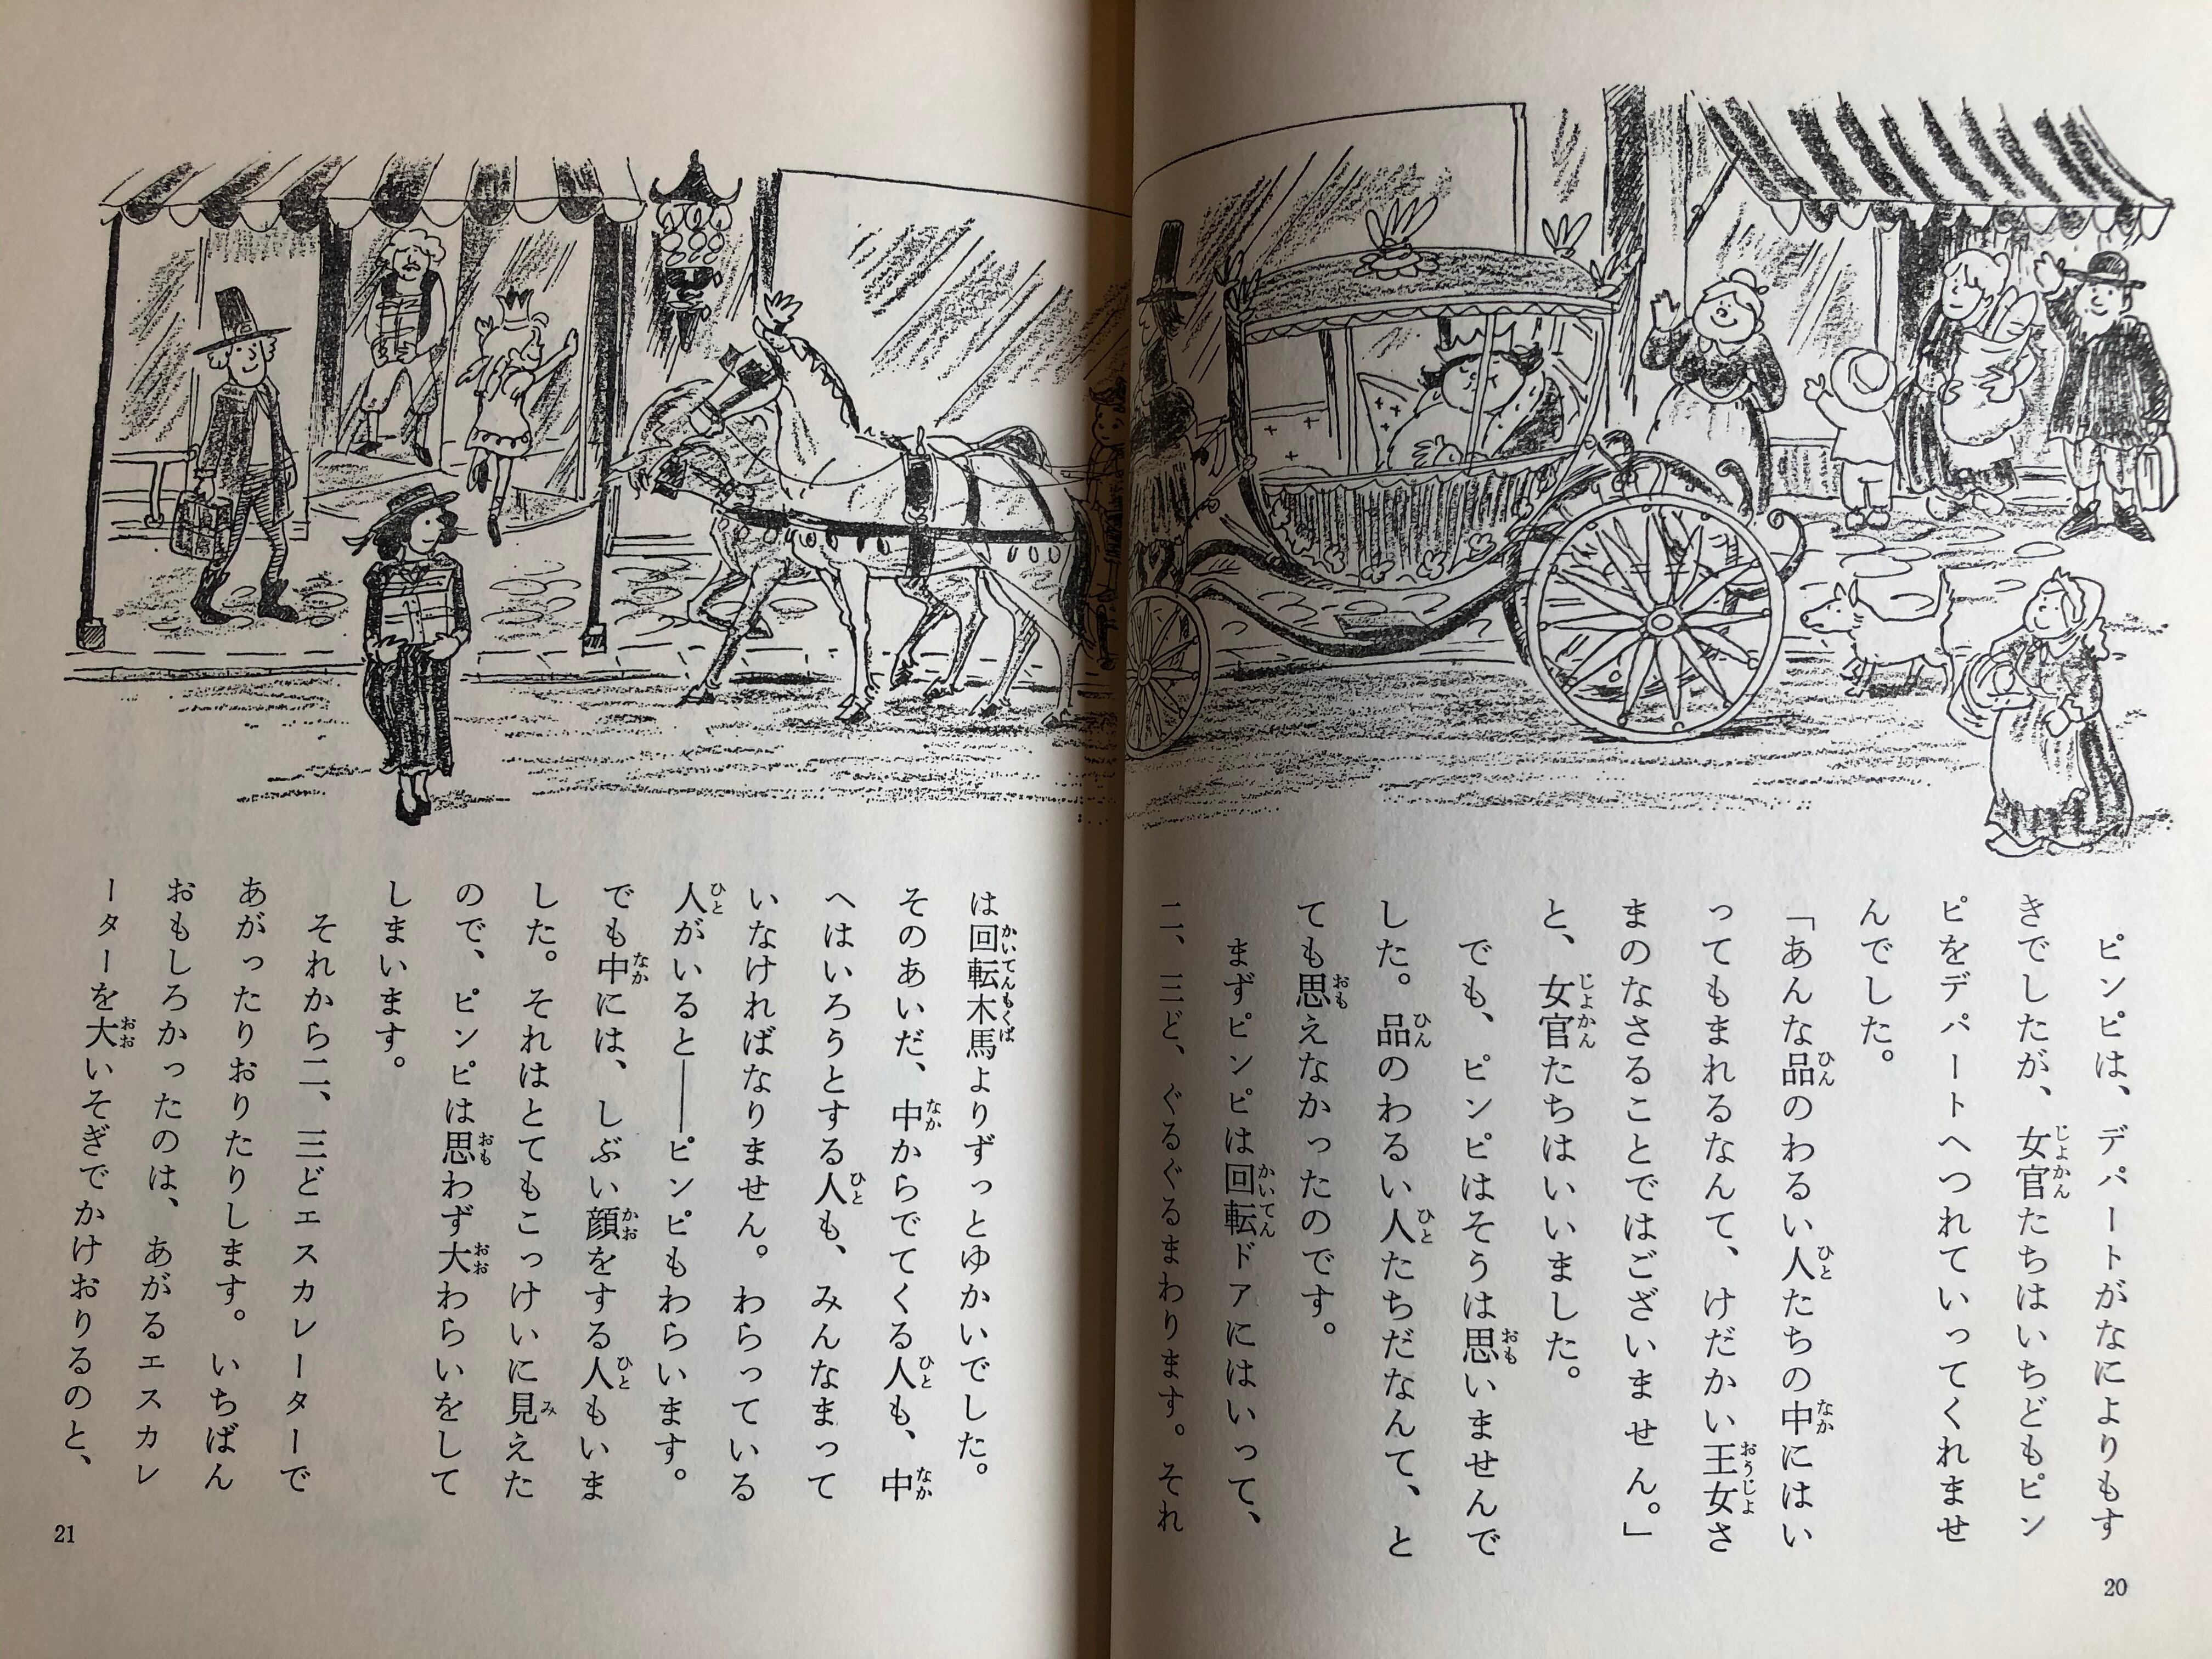 ピンピは、デパートがなによりもす
きでしたが、女官たちはいちどもピン
ピをデパートへつれていってくれませ
んでした。
「あんな品のわるい人たちの中にはい
ってもまれるなんて、けだかい王女さ
まのなさることではございません。」
と、女官たちはいいました。
でも、ピンピはそうは思いませんで
した。品のわるい人たちだなんて、と
ても思えなかったのです。
まずピンピは回転ドアにはいって、
二、三ど、ぐるぐるまわります。それ
20
は回転木馬よりずっとゆかいでした。
そのあいだ、中からでてくる人も、中
へはいろうとする人も、みんなまって
いなければなりません。わらっている
人がいると――ピンピもわらいます。
でも中には、しぶい顔をする人もいま
した。それはとてもこっけいに見えた
ので、ピンピは思わず大わらいをして
しまいます。
それから二、三どエスカレーターで
あがったりおりたりします。いちばん
おもしろかったのは、あがるエスカレ
ーターを大いそぎでかけおりるのと、
21